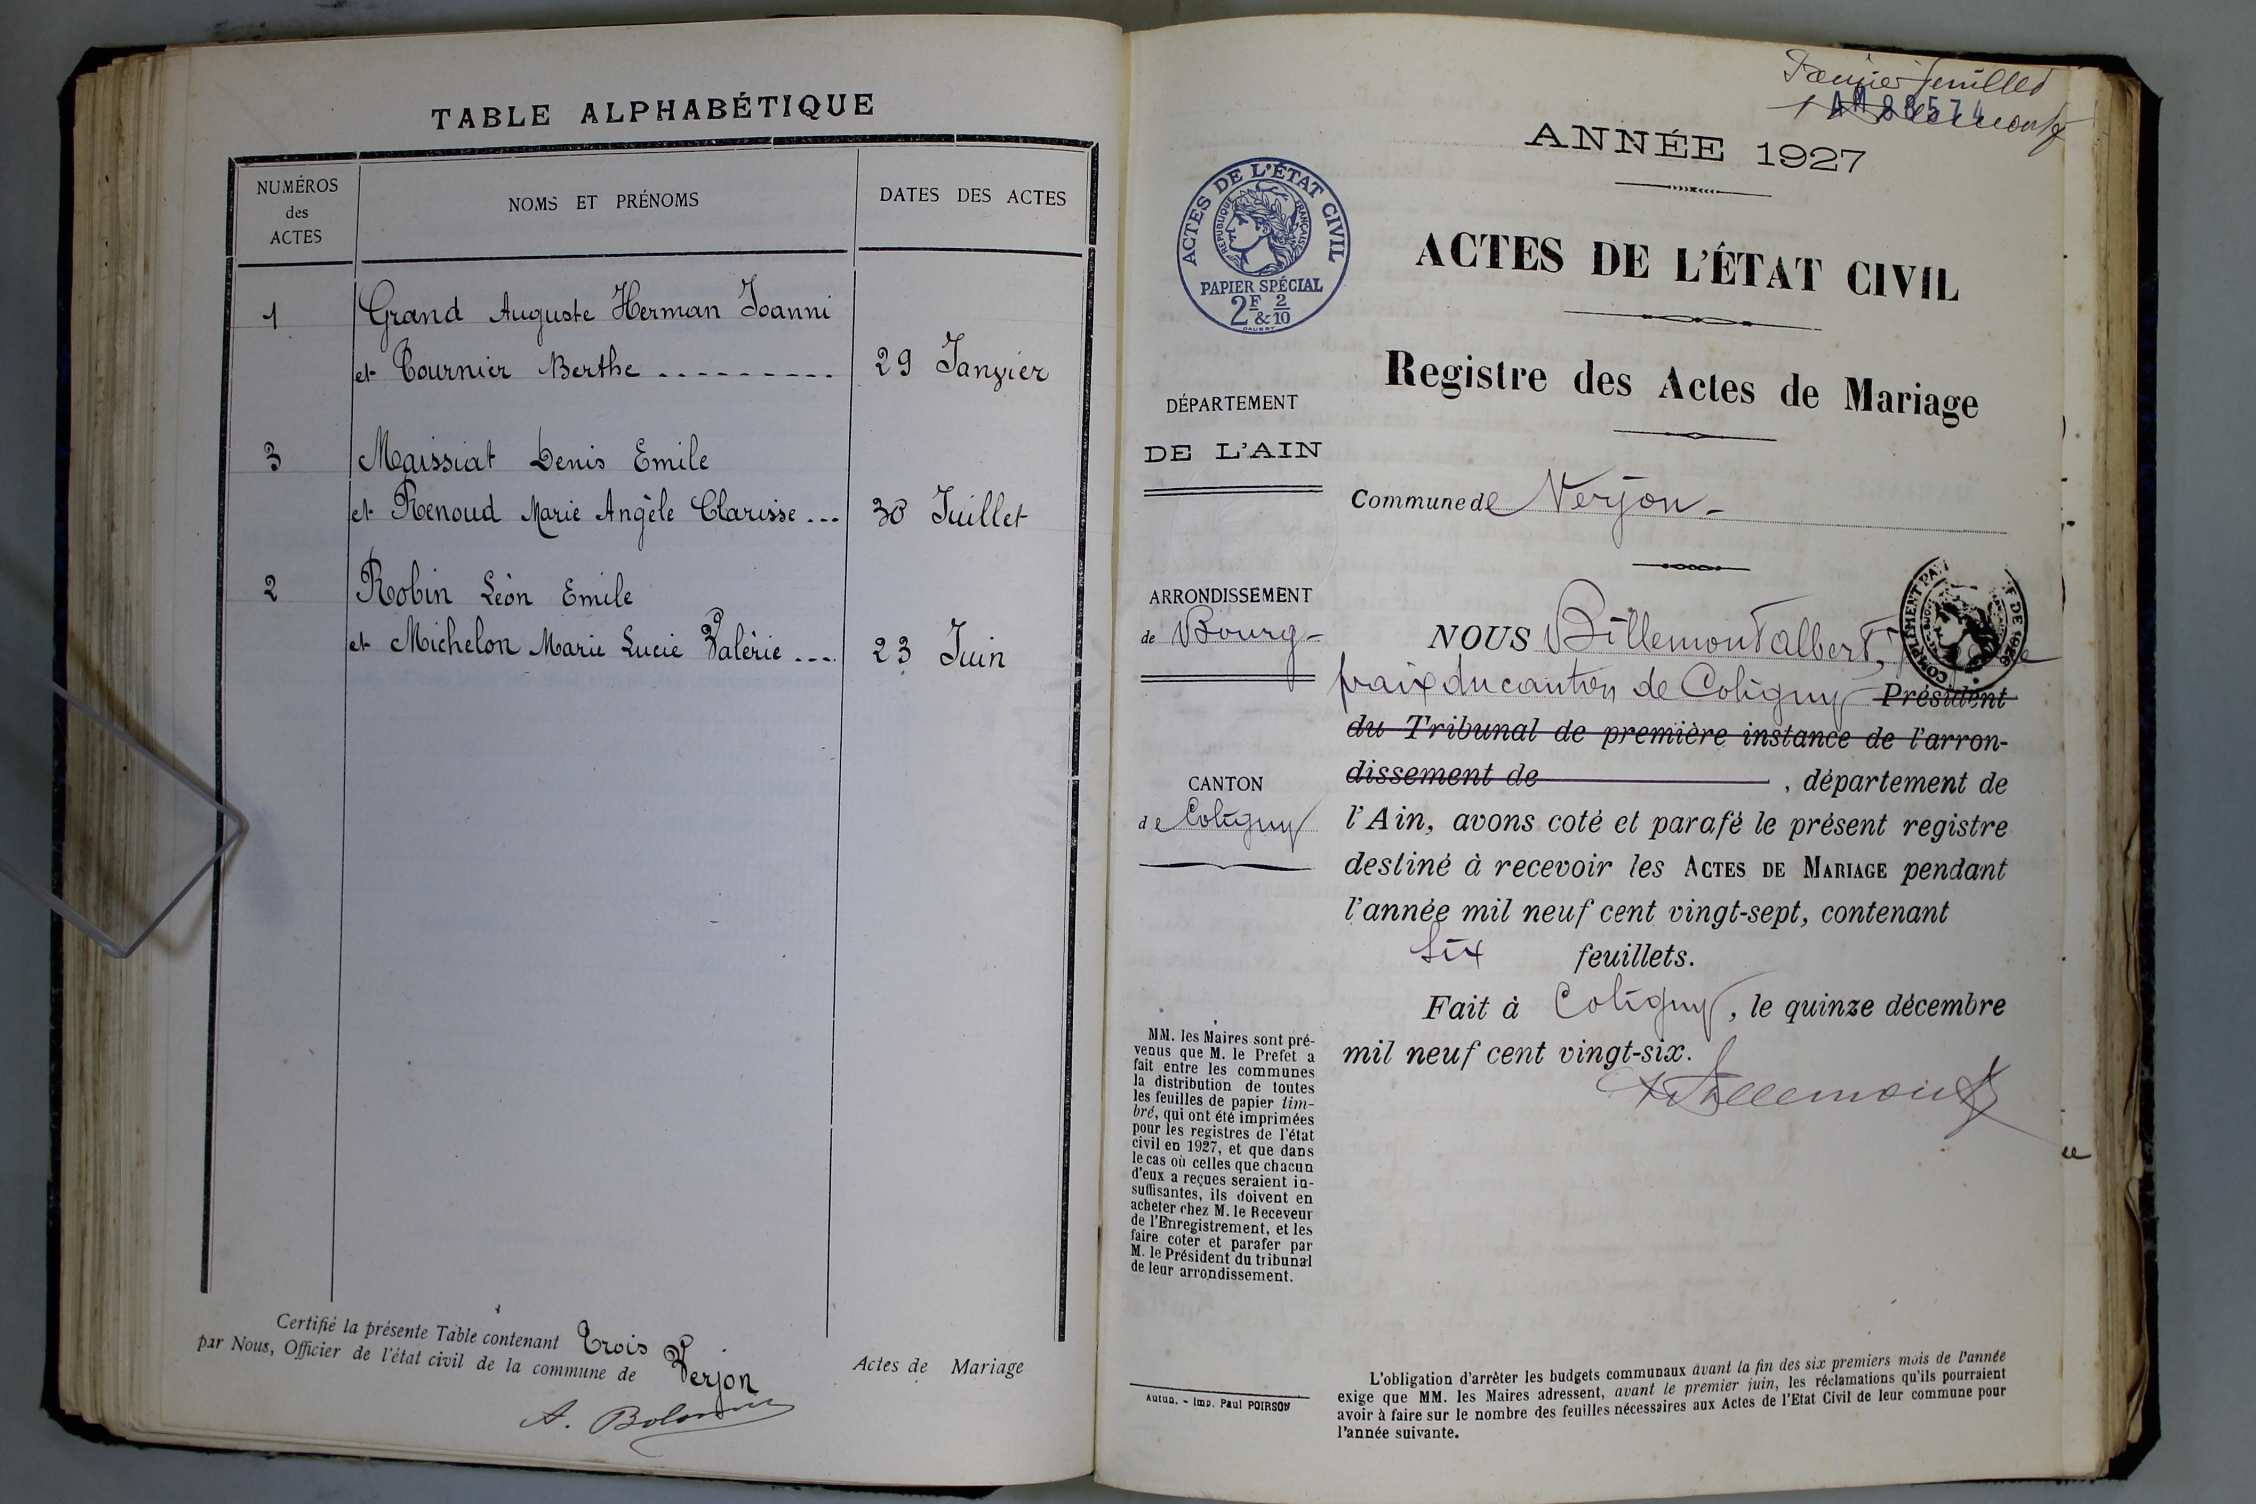 TABLE ALPHABÉTIQUE
NUMÉROS
des
ACTES
NOMS ET PRÉNOMS
DATES DES ACTES
1 Grand Auguste Herman Joanni
et Tournier Berthe .......... 29 Janvier
3 Maissiat Denis Emile
et Renoud Marie Angèle Clarisse ... 30 Juillet
2 Robin Léon Emile
et Michelon Marie Lucie Valérie .... 23 Juin
Certifié la présente Table contenant Trois
Actes de Mariage
par Nous, Officier de l'état civil de la commune de Verjon
feuillet
ANNÉE 1927
ACTES DE L'ÉTAT CIVIL
RÉPUBLIQUE FRANÇAISE
PAPIER SPÉCIAL
2F & 2/10
ACTES DE L'ÉTAT CIVIL
Registre des Actes de Mariage
DÉPARTEMENT
DE L'AIN
Commune de Verjon -
ARRONDISSEMENT
de Bourg -
CANTON
de Coligny
NOUS Billemont albert,
paix du canton de Coligny Président
du Tribunal de première instance de l'arron-
dissement de , département de
l'Ain, avons coté et parafé le présent registre
destiné à recevoir les ACTES DE MARIAGE pendant
l'année mil neuf cent vingt-sept, contenant
six feuillets.
Fait à Coligny, le quinze décembre
mil neuf cent vingt-six.
Billemont
MM. les Maires sont pré-
venus que M. le Prefet a
fait entre les communes
la distribution de toutes
les feuilles de papier tim-
bré, qui ont été imprimées
pour les registres de l'état
civil en 1927, et que dans
le cas où celles que chacun
d'eux a reçues seraient in-
suffisantes, ils doivent en
acheter chez M. le Receveur
de l'Enregistrement, et les
faire coter et parafer par
M. le Président du tribunal
de leur arrondissement.
Autun. - Imp. Paul POIRSON
L'obligation d'arrêter les budgets communaux avant la fin des six premiers mois de l'année
exige que MM. les Maires adressent, avant le premier juin, les réclamations qu'ils pourraient
avoir à faire sur le nombre des feuilles nécessaires aux Actes de l'Etat Civil de leur commune pour
l'année suivante.